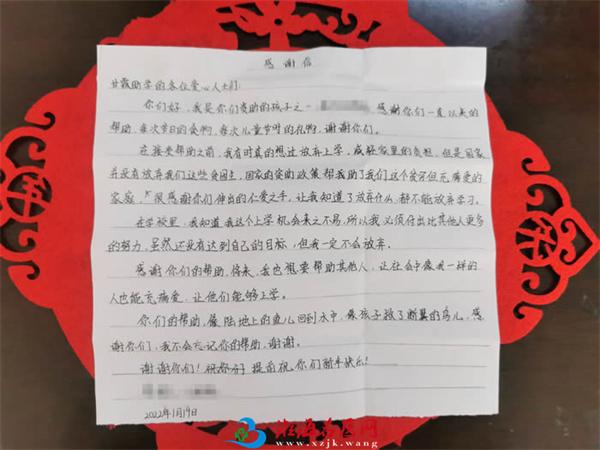 感谢信
甘霖助学的各位爱心人士们:
你们好,我是你们资助的孩子之一 感谢你们一直以来的
帮助,每次节日的食物,每次儿童节时的礼物,谢谢你们。
在接受帮助之前,我有时真的想过放弃上学,减轻家里的负担,但是国家
并没有放弃我们这些贫困生,国家的资助政策帮我助了我们这个贫穷但充满爱的
家庭,很感谢你们伸出的仁爱之手,让我知道了放弃什么,都不能放弃学习。
在学校里,我知道我这个上学机会来之不易,所以我必须付出比其他人更多
的努力,虽然还没有达到自己的目标,但我一定不会放弃。
感谢你们的帮助,将来,我也想要帮助其他人,让社会中像我一样的
人也能充满爱,让他们能够上学。
你们的帮助,像陆地上的鱼儿回到水中,像孩子救了断翼的鸟儿,感
谢你们,我不会忘记你的帮助,谢谢。
谢谢你们!祝你们 提前祝你们新年快乐!
2022年1月19日
www.xzjk.wang